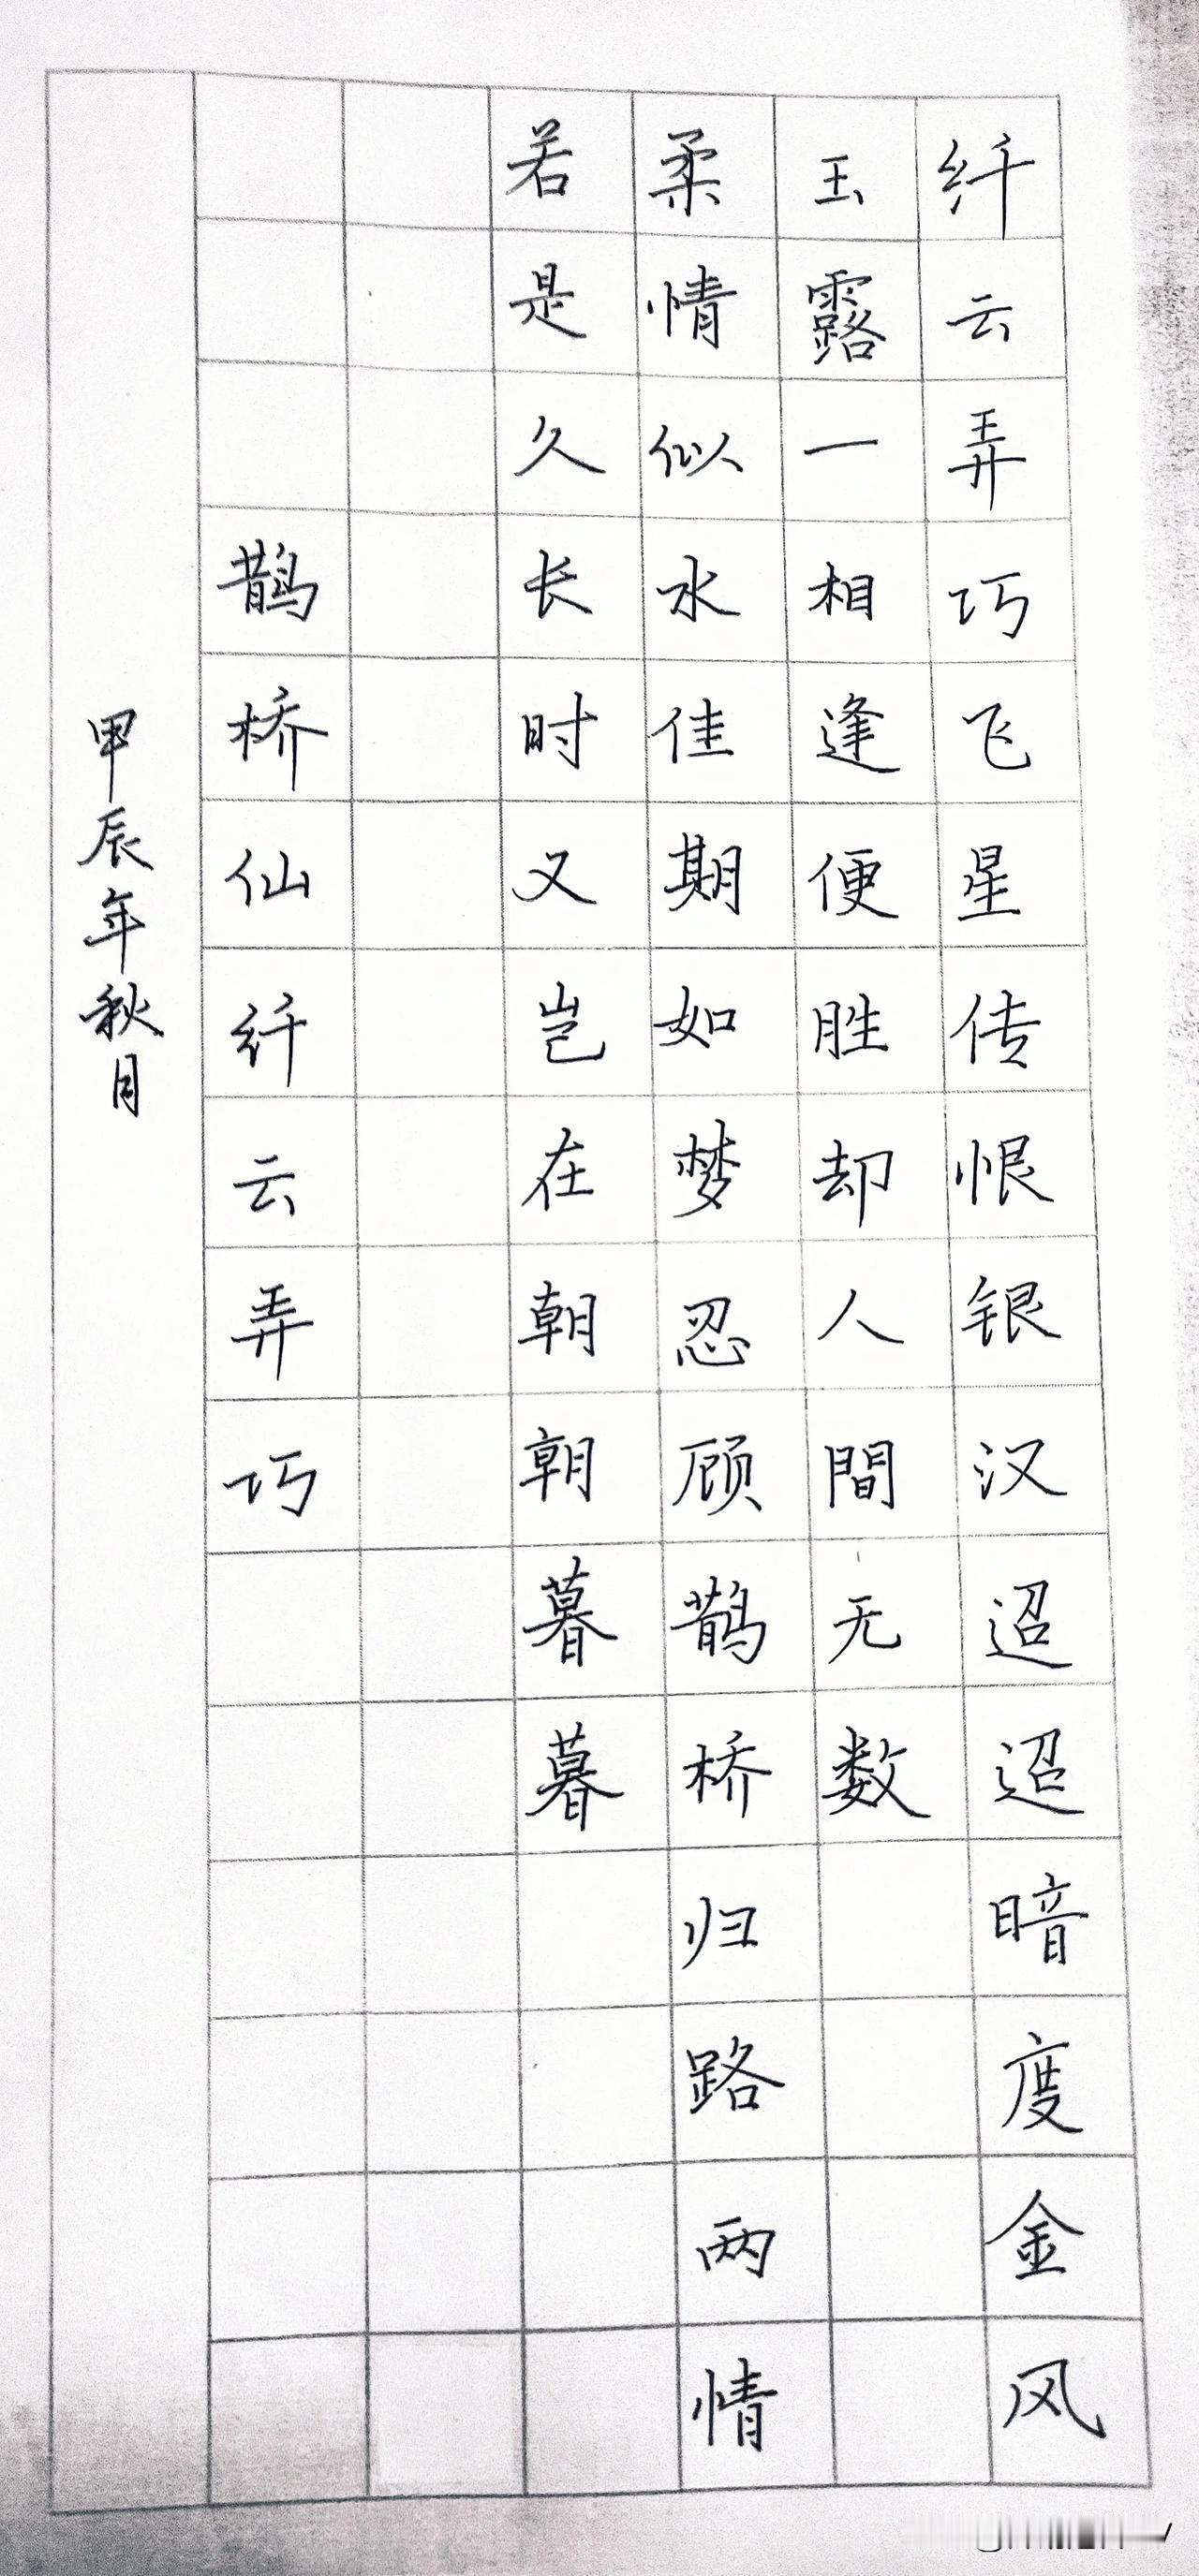 纤云弄巧飞星传恨银汉迢迢暗度金风
玉露一相逢便胜却人間无数
柔情似水佳期如梦忍顾鹊桥归路两情
若是久长时又岂在朝朝暮暮
鹊桥仙纤云弄巧
甲辰年秋月